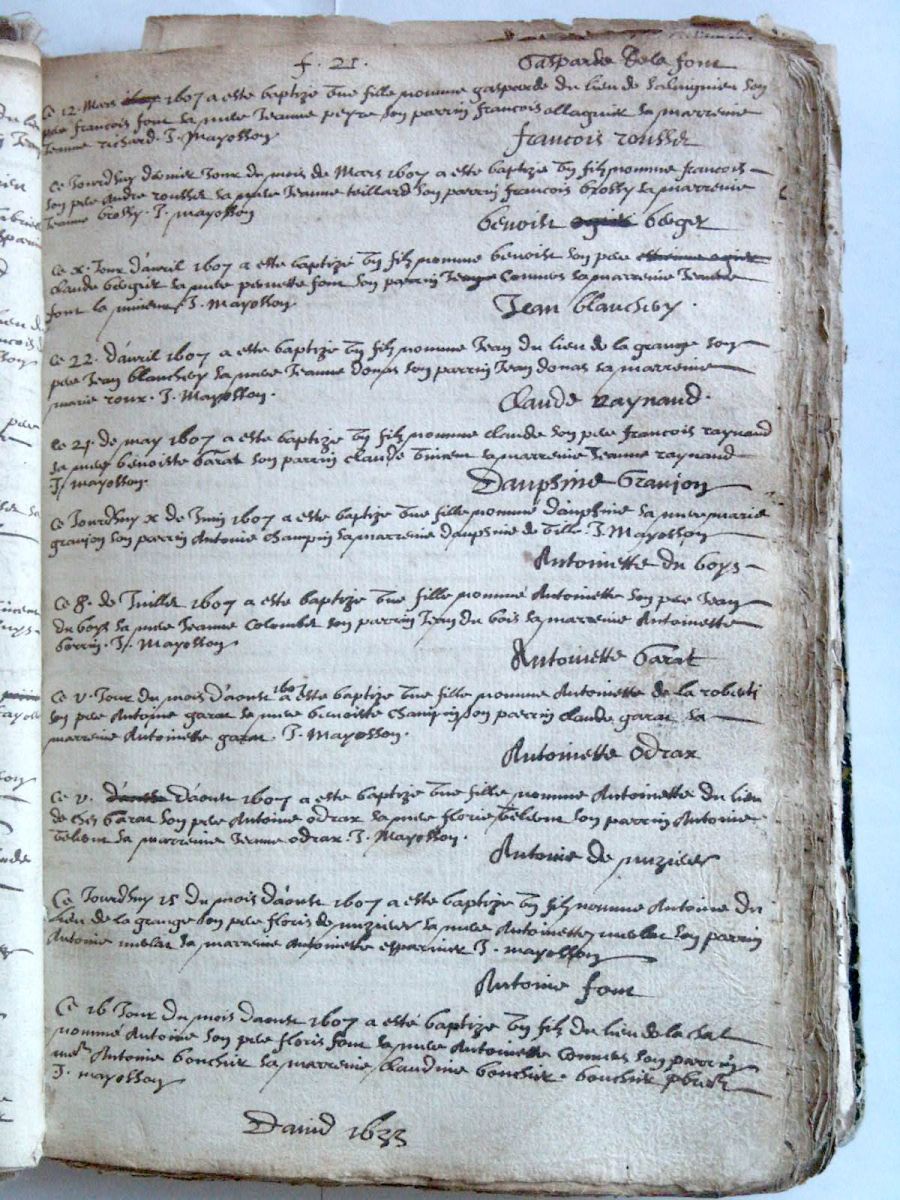 f. 21.
Gasparde de la font
Ce 12. Mars 1607 a este baptize une fille nomme gasparde du lieu de son
pere francois font sa mere Jeanne peyre son parrin francois allagnier sa marreine
Jeanne richard. J. Mayosson
francois rousset
Ce Jourdhuy dernier Jour du mois de Mars 1607 a este baptize un filz nomme francois
son pere Andre rousset sa mere Jeanne teillard son parrin francois brossy sa marreine
Jeanne brossy. J. mayosson
benoist bergier
Ce x. Jour d'avril 1607 a este baptize un filz nomme benoist son pere
Claude bergier sa mere pernette font son parrin Connues sa marreine Jeanne
font la J. Mayosson
Jean blanchery
Ce 22. d'avril 1607 a este baptize un filz nomme Jean du lieu de la grange son
pere Jean blanchery sa mere Jeanne donas son parrin Jean donas sa marreine
marie roux. J. Mayosson.
Claude raynaud.
Ce 21. de may 1607 a este baptize un filz nomme Claude son pere francois raynaud
sa mere benoiste Garat son parrin claude vincent sa marreine Jeanne raynaud
J. mayosson.
Dauphine Granjon
Ce Jourdhuy x de Juin 1607 a este baptize une fille nommé dauphine sa mere marie
granjon son parrin Antoine Champin sa marreine dauphine de ville. J. Mayosson
Antoinette du boys
Ce 8. de Juillet 1607 a este baptize une fille nommé Antoinette son pere Jean
du boys sa mere Jeanne Colombet son parrin Jean du bois sa marreine Antoinette
borrin. J. Mayosson
Antoinette Garat
Ce V. Jour du mois d'aoust 1607 a este baptize une fille nomme Antoinette de la roberti
son pere Antoine garat sa mere benoiste Champin son parrin Claude garat sa
marreine Antoinette garat. J. Mayosson.
Antoinette Odrax
Ce V. d'aoust 1607 a este baptize une fille nomme Antoinette du lieu
de chis Garat son pere Antoine Odrax sa mere florie son parrin Antoine
sa marreine Jeanne Odrax. J. Mayosson.
Antoine de muzieu
Ce Jourdhuy 15 du mois d'aoust 1607 a este baptize un filz nomme Antoine du
lieu de la grange son pere floris de muzieu sa mere Antoinette son parrin
Antoine sa marreine Antoinette J. mayosson
Antoine font
Ce 16 Jour du mois daoust 1607 a esté baptize un filz du lieu de la chal
nommé Antoine son pere floris font sa mere Antoinette Connues son parrin
Antoine bonchier sa marreine claudine bonchier. bonchier
J. mayosson
David 1633